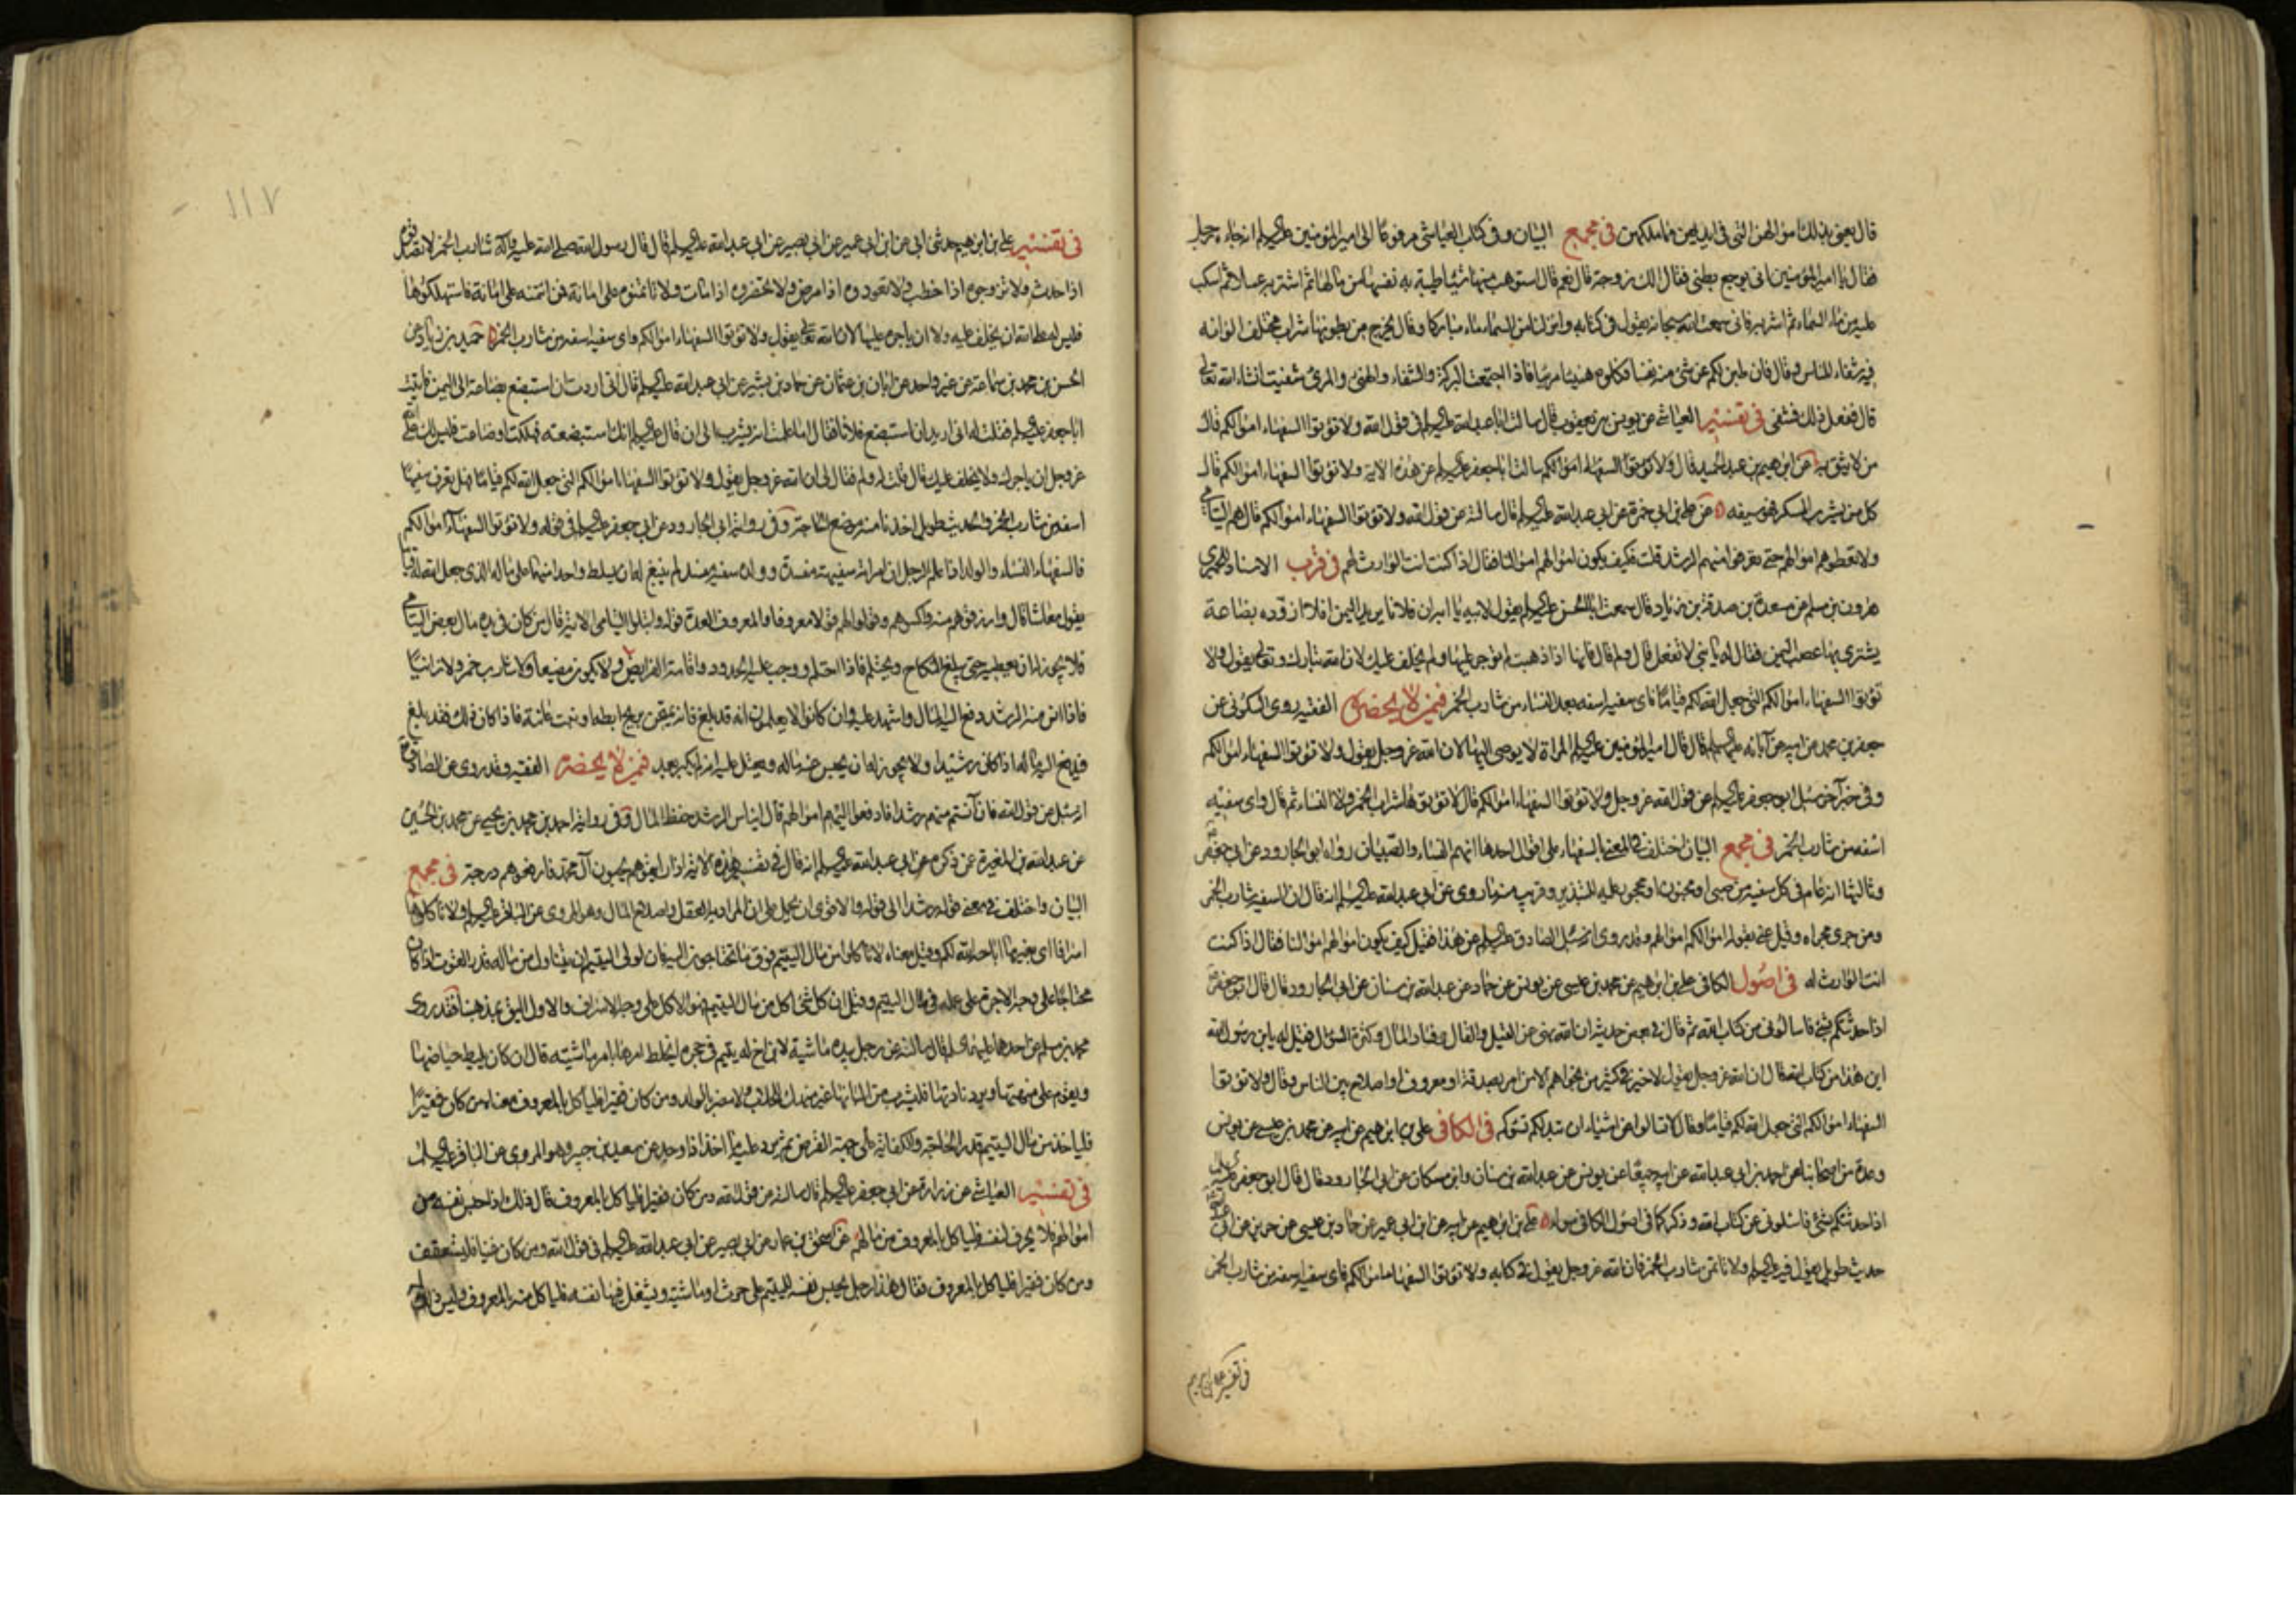 قال يعنى بذلك اموالهن التى فى ايديهن مما ملكهن فى مجمع البيان وفى كتاب العياشى مرفوعا الى اميرالمؤمنين عليه السلم انه جاء رجل
فقال يا اميرالمؤمنين انى يوجع بطنى فقال الك زوجة قال نعم قال استوهب منها شيئا طيبة به نفسها من مالها ثم اشتر به عسلا ثم اسكب
عليه من ماء السماء ثم اشربه فانى سمعت الله سبحانه يقول فى كتابه وانزلنا من السماء ماء مباركا وقال يخرج من بطونها شراب مختلف الوانه
فيه شفاء للناس وقال فان طبن لكم عن شئ منه نفسا فكلوه هنيئا مريئا فاذا اجتمعت البركة والشفاء والهنئ والمرئ شفيت انشاء الله تعالى
قال ففعل ذلك فشفى فى تفسير العياشى عن يونس بن يعقوب قال سالت ابا عبدالله عليه السلم فى قول الله ولا تؤتوا السفهاء اموالكم قال
من لا تثق به عن ابرهيم بن عبدالحميد قال ولا تؤتوا السفهاء اموالكم سالت ابا جعفر عليه السلم عن هذه الاية ولا تؤتوا السفهاء اموالكم قال
كل من يشرب المسكر فهو سفيه عن على بن ابى حمزة عن ابى عبدالله عليه السلم قال سالته عن قول الله ولا تؤتوا السفهاء اموالكم قال هم اليتامى
ولا تعطوهم اموالهم حتى تعرفوا منهم الرشد قلت فكيف يكون اموالهم اموالنا فقال اذا كنت انت الوارث لهم فى قرب الاسناد للحميرى
هرون بن مسلم عن مسعدة بن صدقة بن زياد قال سمعت ابا الحسن عليه السلم يقول لابيه يا ابه ان فلانا يريد اليمن افلا ازوده بضاعة
يشترى بها عصب اليمن فقال له يا بنى لا تفعل قال ولم قال فانها اذا ذهبت لم تؤجر عليها ولم يخلف عليك لان الله تبارك وتعالى يقول ولا
تؤتوا السفهاء اموالكم التى جعل الله لكم قياما فاى سفيه اسفه بعد النساء من شارب الخمر فى من لا يحضره الفقيه روى السكونى عن
جعفر بن محمد عن ابيه عن آبائه عليهم السلم قال قال اميرالمؤمنين عليه السلم المراة لا يوصى اليها لان الله عز وجل يقول ولا تؤتوا السفهاء اموالكم
وفى خبر آخر سئل ابو جعفر عليه السلم عن قول الله عز وجل ولا تؤتوا السفهاء اموالكم قال لا تؤتوها شراب الخمر ولا النساء ثم قال واى سفيه
اسفه من شارب الخمر فى مجمع البيان اختلف فى المعنى بالسفهاء على اقوال احدها انهم النساء والصبيان رواه ابو الجارود عن ابى جعفر
وثالثها انه عام فى كل سفيه من صبى او مجنون او محجور عليه للتبذير وقريب منه ما روى عن ابى عبدالله عليه السلم انه قال ان السفيه شارب الخمر
ومن جرى مجراه وقيل عنى بقوله اموالكم اموالهم وقد روى انه سئل الصادق عليه السلم عن هذا فقيل كيف يكون اموالهم اموالنا فقال اذا كنت
انت الوارث له فى اصول الكافى على بن ابرهيم عن محمد بن عيسى عن يونس عن حماد عن عبدالله بن سنان عن ابى الجارود قال قال ابو جعفر
اذا حدثتكم بشئ فاسالونى من كتاب الله ثم قال فى بعض حديثه ان الله نهى عن القيل والقال وفساد المال وكثرة السؤال فقيل له يابن رسول الله
اين هذا من كتاب الله قال ان الله عز وجل يقول لا خير فى كثير من نجواهم الا من امر بصدقة او معروف او اصلاح بين الناس وقال ولا تؤتوا
السفهاء اموالكم التى جعل الله لكم قياما وقال لا تسالوا عن اشياء ان تبد لكم تسؤكم فى الكافى على بن ابرهيم عن ابيه عن محمد بن عيسى عن يونس
وعدة من اصحابنا عن احمد بن ابى عبدالله عن ابيه جميعا عن يونس عن عبدالله بن سنان وابن مسكان عن ابى الجارود قال قال ابو جعفر عليه السلم
اذا حدثتكم بشئ فاسئلونى عن كتاب الله وذكر كما فى اصول الكافى سواء على بن ابرهيم عن ابيه عن ابن ابى عمير عن حماد بن عيسى عن حريز عن ابى عبدالله
حديث طويل يقول فيه عليه السلم ولا تاتمن شارب الخمر فان الله عز وجل يقول فى كتابه ولا تؤتوا السفهاء اموالكم فاى سفيه اسفه من شارب الخمر
فى تفسير على بن ابرهيم
١١٧
فى تفسير على بن ابرهيم حدثنى ابى عن ابن ابى عمير عن ابى بصير عن ابى عبدالله عليه السلم قال قال رسول الله صلى الله عليه وآله شارب الخمر لا تصدقوه
اذا حدث ولا تزوجوه اذا خطب ولا تعودوه اذا مرض ولا تحضروه اذا مات ولا تاتمنوه على امانة فمن ائتمنه على امانة فاستهلكها
فليس له على الله ان يخلف عليه ولا ان ياجره عليها لان الله تعالى يقول ولا تؤتوا السفهاء اموالكم واى سفيه اسفه من شارب الخمر حميد بن زياد عن
الحسن بن محمد بن سماعة عن غير واحد عن ابان بن عثمان عن حماد بن بشير عن ابى عبدالله عليه السلم قال انى اردت ان استبضع بضاعة الى اليمن فاتيت
ابا جعفر عليه السلم فقلت له انى اريد ان استبضع فلانا فقال اما علمت انه يشرب الى ان قال عليه السلم انك استبضعته فهلكت او ضاعت فليس لك على الله
عز وجل ان ياجرك ولا يخلف عليك قال قلت له ولم فقال لى ان الله عز وجل يقول ولا تؤتوا السفهاء اموالكم التى جعل الله لكم قياما فهل تعرف سفيها
اسفه من شارب الخمر والحديث طويل اخذنا منه موضع الحاجة وفى رواية ابى الجارود عن ابى جعفر عليه السلم فى قوله ولا تؤتوا السفهاء اموالكم
فالسفهاء النساء والولد اذا علم الرجل ان امراته سفيهة مفسدة وولده سفيه مفسد لم ينبغ له ان يسلط واحدا منهما على ماله الذى جعل الله له قياما
يقول معاشا قال وارزقوهم منه واكسوهم وقولوا لهم قولا معروفا والمعروف العدة قوله وابتلوا اليتامى الاية قال من كان فى يده مال بعض اليتامى
فلا يجوز له ان يعطيه حتى يبلغ النكاح ويحتلم فاذا احتلم ووجب عليه الحدود واقامة الفرايض ولا يكون مضيعا ولا شارب خمر ولا زانيا
فاذا انس منه الرشد دفع اليه المال واشهد عليه وان كانوا لا يعلمون انه قد بلغ فانه يمتحن بريح ابطه او نبت عانته فاذا كان ذلك فقد بلغ
فيدفع اليه ماله اذا كان رشيدا ولا يجوز له ان يحبس عنه ماله ويعتل عليه انه لم يكبر بعد فى من لا يحضره الفقيه وقد روى عن الصادق
انه سئل عن قول الله فان آنستم منهم رشدا فادفعوا اليهم اموالهم قال ايناس الرشد حفظ المال وفى رواية احمد بن محمد بن يحيى عن محمد بن الحسين
عن عبدالله بن المغيرة عن ذكره عن ابى عبدالله عليه السلم انه قال فى تفسير هذه الاية اذا رايتموهم يحبون آل محمد فارفعوهم درجة فى مجمع
البيان واختلف فى معنى قوله رشدا الى قوله والاقوى ان يحمل على ان المراد به العقل واصلاح المال وهو المروى عن الباقر عليه السلم ولا تاكلوها
اسرافا اى بغير ما اباحه الله لكم وقيل معناه لا تاكلوا من مال اليتيم فوق ما تحتاجون اليه فان لولى اليتيم ان يتناول من ماله قدر القوت اذا كان
محتاجا على وجه الاجرة على عمله فى مال اليتيم وقيل ان كل شئ اكل من مال اليتيم فهو الاكل على وجه الاسراف والاول اليق بمذهبنا فقد روى
محمد بن مسلم عن احدهما عليهما السلم قال سالته عن رجل بيده ماشية لابن اخ له يتيم فى حجره ايخلط امرها بامر ماشيته قال ان كان يليط حياضها
ويقوم على مهنتها ويرد نادتها فليشرب من البانها غير منهك للحلاب ولا مضر بالولد ومن كان فقيرا فلياكل بالمعروف معناه من كان فقيرا
فلياخذ من مال اليتيم قدر الحاجة والكفاية على جهة القرض ثم يرد عليه ما اخذ اذا وجد عن سعيد بن جبير وهو المروى عن الباقر عليه السلم
فى تفسير العياشى عن زرارة عن ابى جعفر عليه السلم قال سالته عن قول الله ومن كان فقيرا فلياكل بالمعروف قال ذلك اذا حبس نفسه من
اموالهم فلا يحرف لنفسه فلياكل بالمعروف من مالهم عن اسحق بن عمار عن ابى بصير عن ابى عبدالله عليه السلم فى قول الله ومن كان غنيا فليستعفف
ومن كان فقيرا فلياكل بالمعروف فقال هذا رجل يحبس نفسه لليتيم على حرث او ماشية ويشغل فيها نفسه فلياكل منه بالمعروف وليس ذلك له